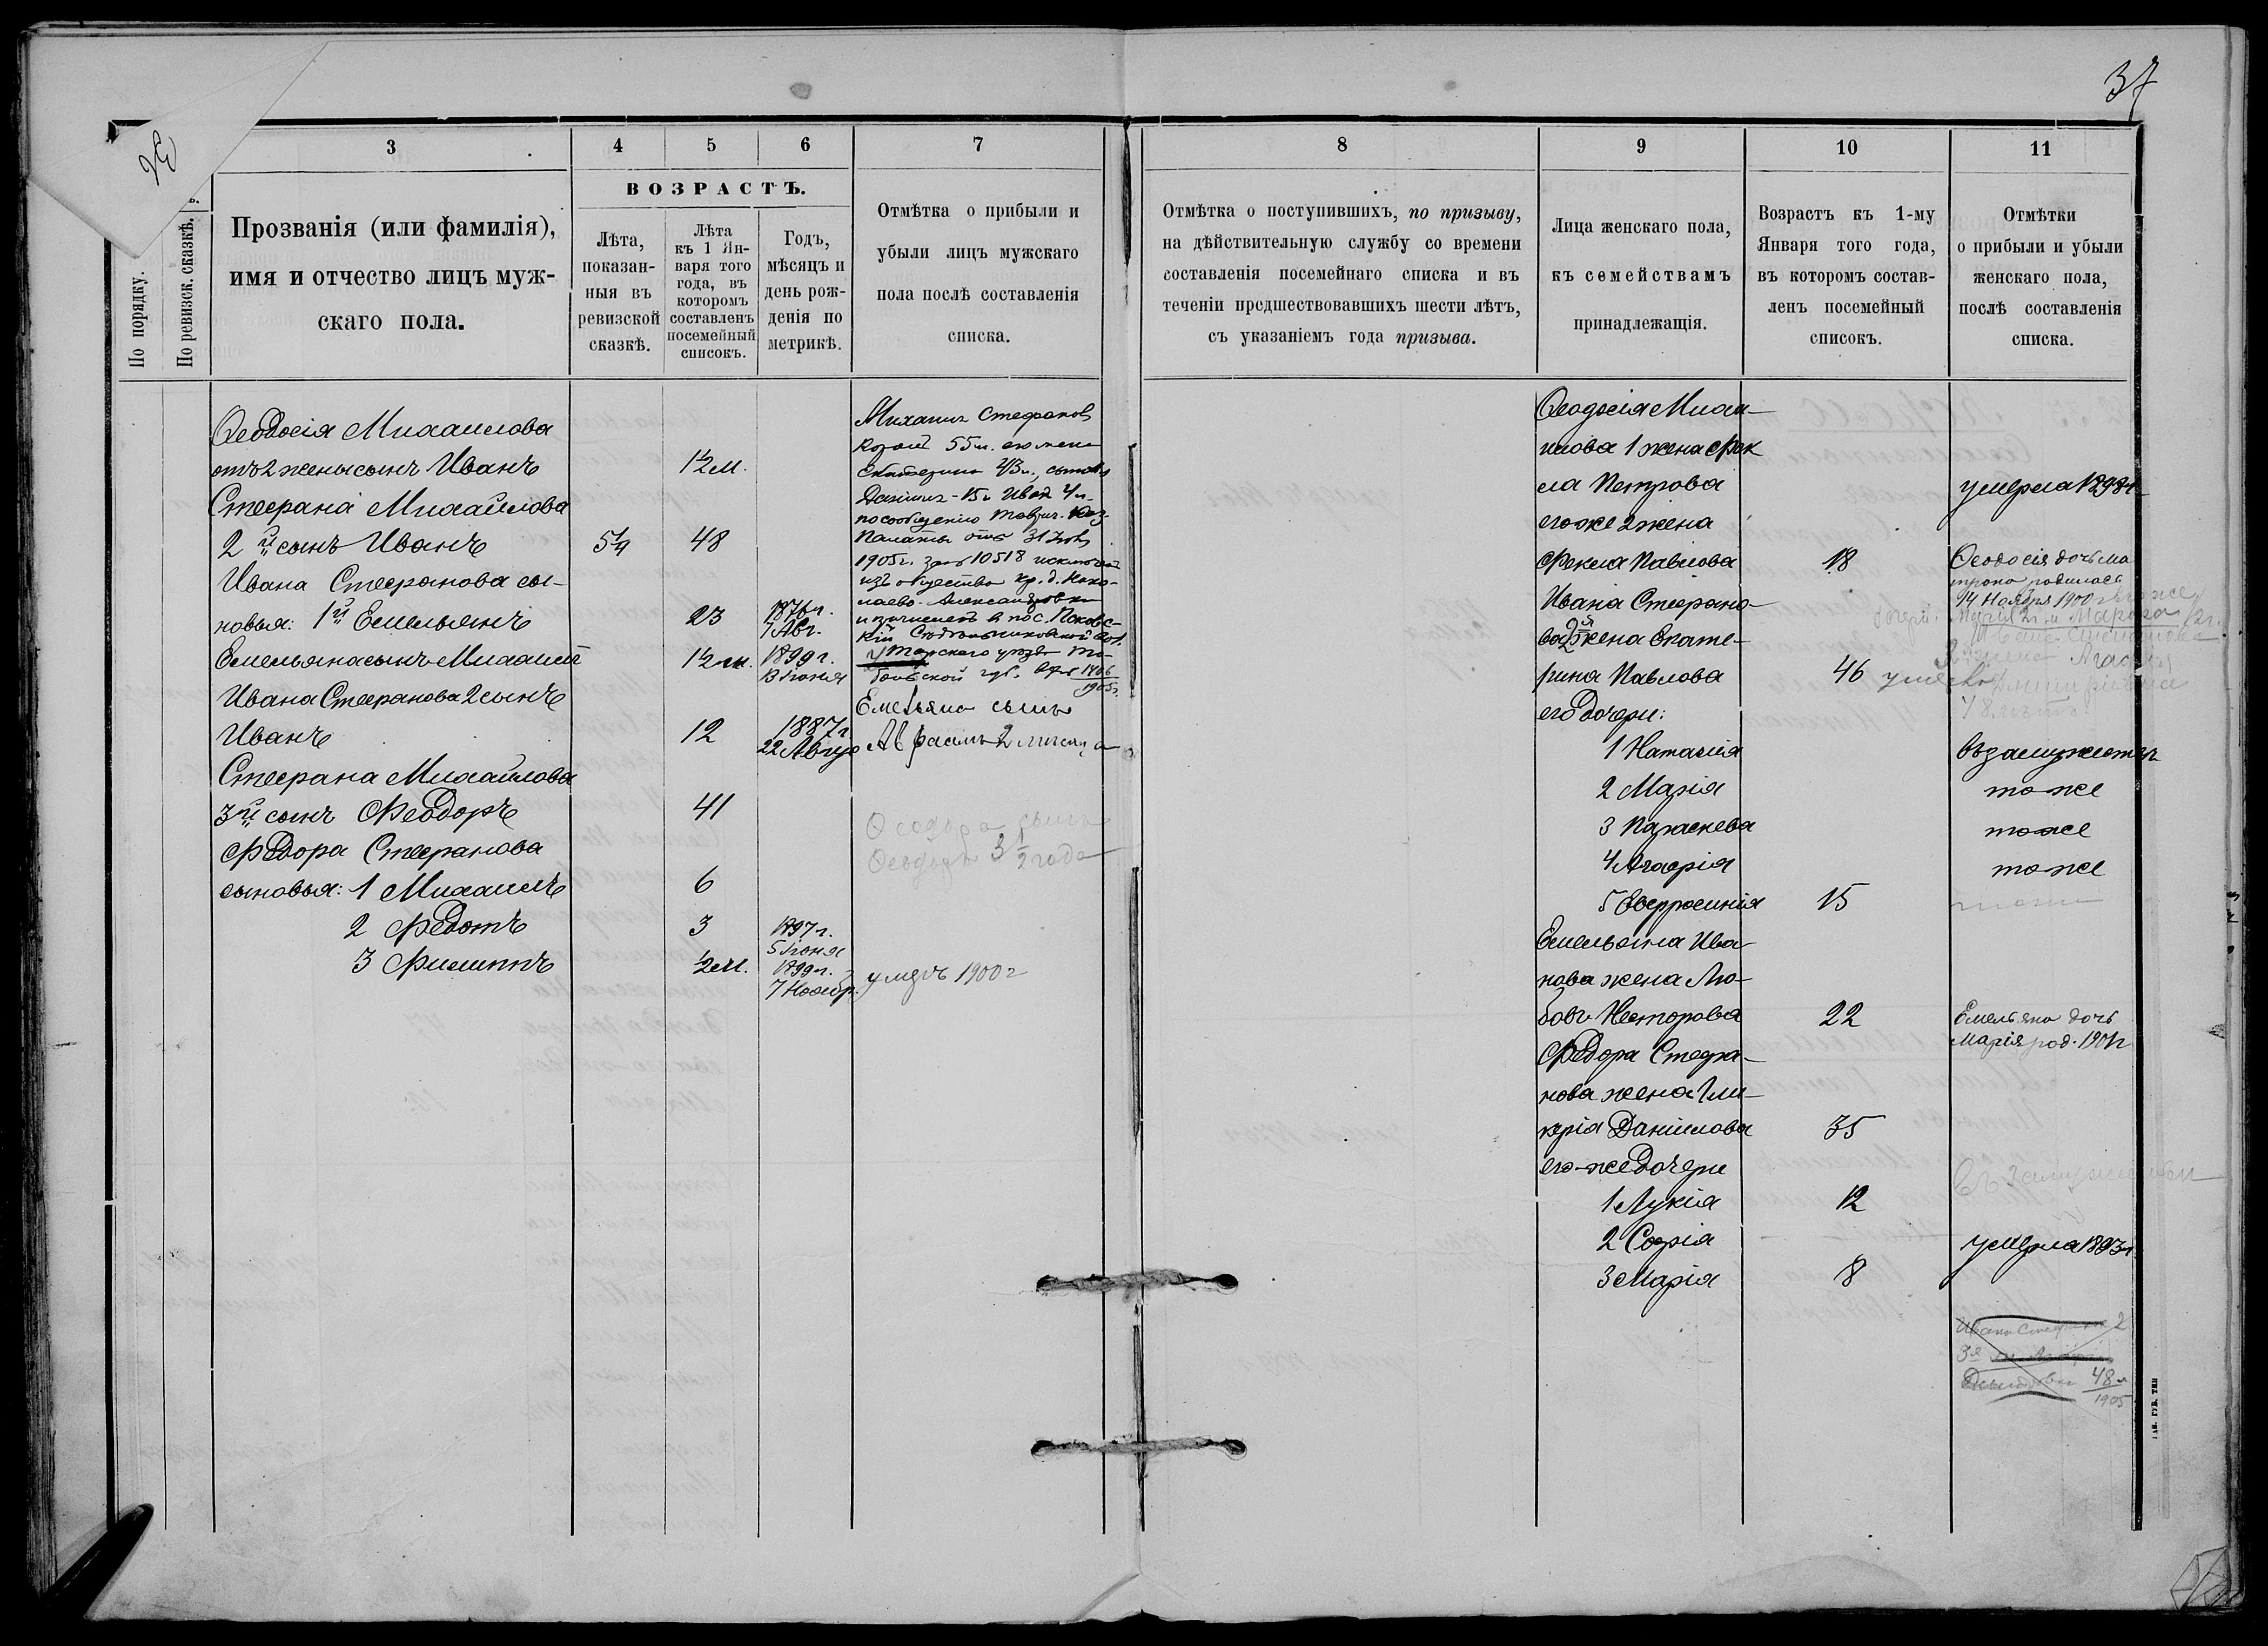 37
3
4
5
6
7
ВОЗРАСТЪ.
Прозванія (или фамилія),
имя и отчество лицъ муж-
скаго пола.
По порядку.
По ревизск. сказкѣ.
Лѣта,
показан-
ныя въ
ревизской
сказкѣ.
Лѣта
къ 1 Ян-
варя того
года, въ
которомъ
составленъ
посемейный
списокъ.
Годъ,
мѣсяцъ и
день рож-
денія по
метрикѣ.
Отмѣтка о прибыли и
убыли лицъ мужскаго
пола послѣ составленія
списка.
Ѳеодосія Михаилова
отъ 2 жены сынъ Иванъ
1/2 м.
Стефана Михайлова
2й сынъ Иванъ
5/4
48
Ивана Стефанова сы-
новья: 1й Емельянъ
23
1876 г.
7 Авг.
Емельяна сынъ Михаилъ
1/2 м.
1899 г.
13 Іюня
Ивана Стефанова 2 сынъ
Иванъ
12
1887 г
22 Авгус
Стефана Михайлова
3й сынъ Феодоръ
41
Федора Стефанова
сыновья: 1 Михаилъ
6
2 Федотъ
3
1897 г.
5 Іюня
3 Филиппъ
1/2 м.
1899 г.
7 Ноябр.
Михаилъ Стефановъ
55 л. его жена
Екатерина 43 л., сыновья
Даніилъ - 15 л Иван 4 л.
по сообщенію Таврич. Каз.
Палаты отъ 31
1905 г. за № 10518
изъ общества кр. д. Нико-
лаево-Александровки
и причисленъ в пос. Псковс-
кій
Тарскаго уезда То-
больской губ.
1906
1905 г.
Емельяна сынъ
Авраамъ 2 месяца
Ѳеодора сынъ
3 1/2 года
умеръ 1900 г
8
9
10
11
Отмѣтка о поступившихъ, по призыву,
на дѣйствительную службу со времени
составленія посемейнаго списка и въ
теченіи предшествовавшихъ шести лѣтъ,
съ указаніемъ года призыва.
Лица женскаго пола,
къ семействамъ
принадлежащія.
Возрастъ къ 1-му
Января того года,
въ которомъ состав-
ленъ посемейный
списокъ.
Отмѣтки
о прибыли и убыли
женскаго пола,
послѣ составленія
списка.
Ѳеодосія Миха-
илова 1 жена Фек
ла Петрова
умерла 1898 г
его же 2 жена
Фекла Павлова
18
Ѳеодосія дочь Ма
трона родилась
14 Ноября 1900 г
Ивана Стефано-
ва жена Екате-
рина Павлова
46
его дочери:
1 Наталія
въ замужестве
2 Марія
тоже
3 Параскева
тоже
4 Агафія
тоже
5 Евфросинія
15
Емельяна Ива-
нова жена Лю-
бовь Несторова
22
Емельяна дочь
Марія род. 1901 г
Федора Стефа-
нова жена Гли-
керія Даниилова
35
его-же дочери
1 Лукія
12
въ замужестве
2 Софія
умерла 1893 г
3 Марія
8
Ивана Стефанова 2
3я
48 л
1905